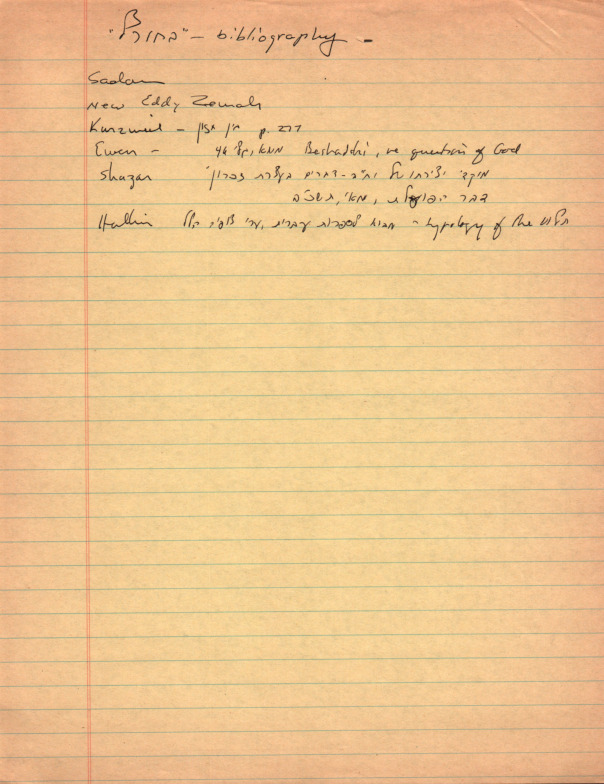 "בחורף" – bibliography –
Sadan
New Eddy Zemach
Kurzweil – p. 277
Ewen – 46 , re question of God
Shazar מוקדי יצירתו של – דברים בעצרת זכרון
דבר הפועלת, מאי, תשכ"ב
Halkin מבוא לספרות עברית, – typology of the תלוש